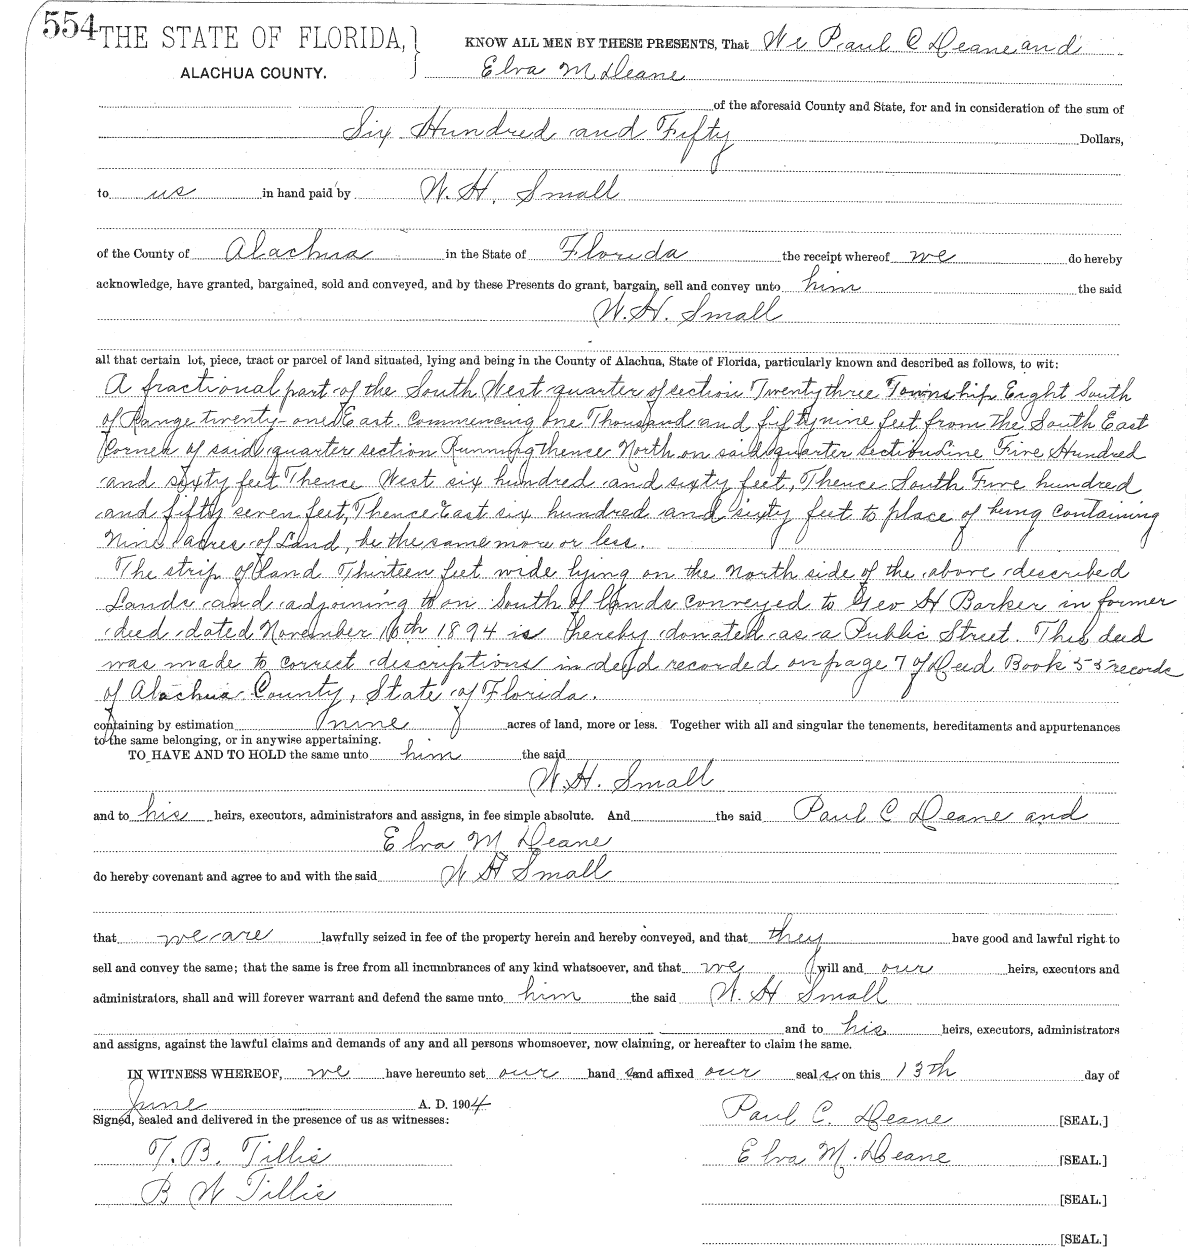 554 THE STATE OF FLORIDA, } KNOW ALL MEN BY THESE PRESENTS, That We Paul C Deane and
ALACHUA COUNTY. Elva M Deane
of the aforesaid County and State, for and in consideration of the sum of
Six Hundred and Fifty Dollars,
to us in hand paid by W. H. Small
of the County of Alachua in the State of Florida the receipt whereof we do hereby
acknowledge, have granted, bargained, sold and conveyed, and by these Presents do grant, bargain, sell and convey unto him the said
W. H. Small
all that certain lot, piece, tract or parcel of land situated, lying and being in the County of Alachua, State of Florida, particularly known and described as follows, to wit:
A fractional part of the South West quarter of section Twenty three Township Eight South
of Range twenty-one East. Commencing one Thousand and fifty nine feet from the South East
Corner of said quarter section Running thence North on said quarter section line Five Hundred
and sixty feet Thence West six hundred and sixty feet, Thence South Five hundred
and fifty seven feet, Thence East six hundred and sixty feet to place of being containing
Nine acres of Land, be the same more or less.
The strip of land Thirteen feet wide lying on the North side of the above described
Lands and adjoining to on South of lands conveyed to Geo H Barker in former
deed dated November 16th 1894 is hereby donated as a Public Street. This deed
was made to correct descriptions in deed recorded on page 7 of Deed Book 55 records
of Alachua County, State of Florida.
containing by estimation nine acres of land, more or less. Together with all and singular the tenements, hereditaments and appurtenances
to the same belonging, or in anywise appertaining.
TO HAVE AND TO HOLD the same unto him the said
W. H. Small
and to his heirs, executors, administrators and assigns, in fee simple absolute. And the said Paul C Deane and
Elva M Deane
do hereby covenant and agree to and with the said W H Small
that we are lawfully seized in fee of the property herein and hereby conveyed, and that they have good and lawful right to
sell and convey the same; that the same is free from all incumbrances of any kind whatsoever, and that we will and our heirs, executors and
administrators, shall and will forever warrant and defend the same unto him the said W. H Small
and to his heirs, executors, administrators
and assigns, against the lawful claims and demands of any and all persons whomsoever, now claiming, or hereafter to claim the same.
IN WITNESS WHEREOF, we have hereunto set our hand s and affixed our seal s on this 13th day of
June A. D. 1904
Signed, sealed and delivered in the presence of us as witnesses: Paul C. Deane [SEAL.]
T. B. Tillis Elva M. Deane [SEAL.]
B W Tillis [SEAL.]
[SEAL.]